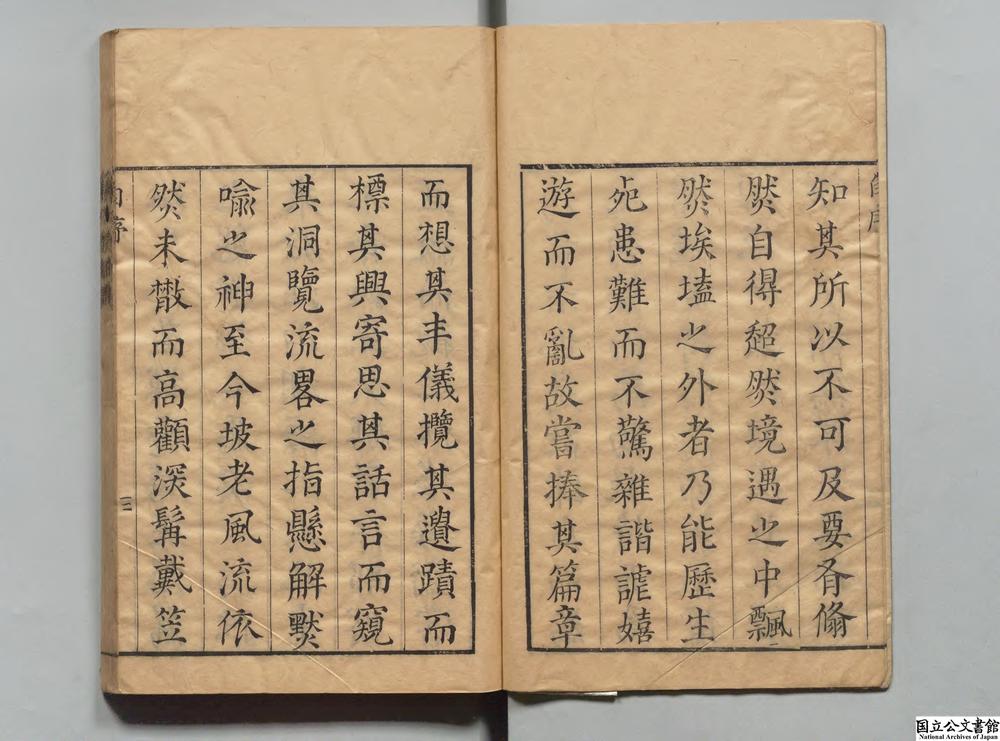 知其所以不可及要有翛
然自得超然境遇之中飄
然埃壒之外者乃能歷生
死患難而不驚雜諧謔嬉
遊而不亂故嘗捧其篇章
而想其丰儀攬其遺蹟而
標其興寄思其話言而窺
其洞覽流畧之指懸解默
喻之神至今坡老風流依
然未散而高顴深髯戴笠
序
三
国立公文書館
National Archives of Japan